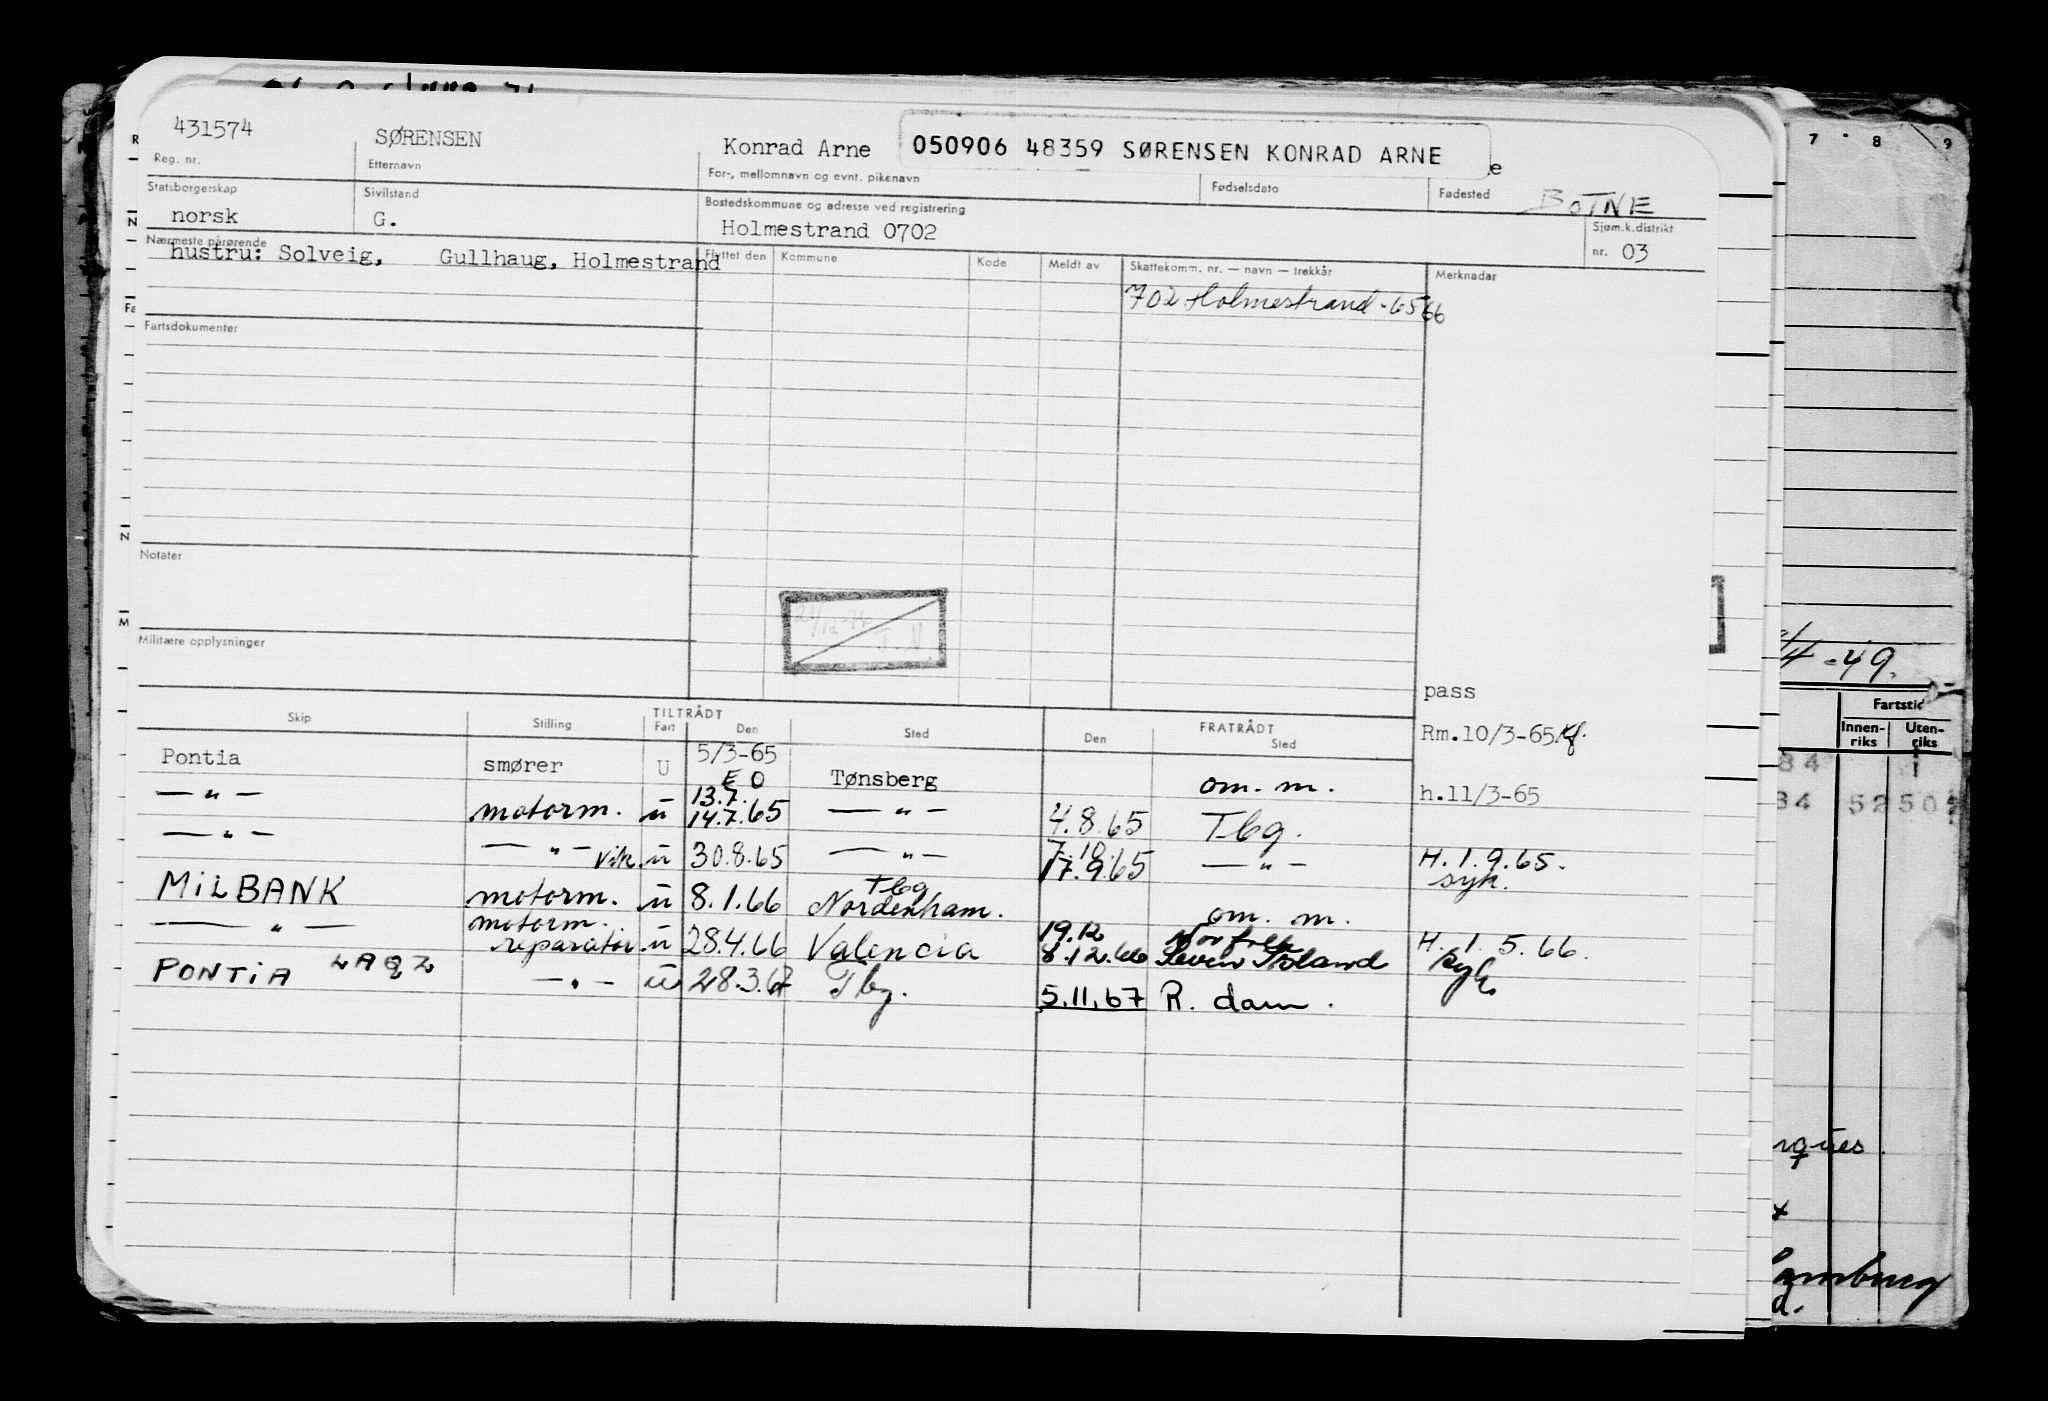 431574 SØRENSEN Konrad Arne 050906 48359 SØRENSEN KONRAD ARNE
Reg. nr. Etternavn For-, mellomnavn og evnt. pikenavn Fødselsdato Fødested BOTNE
Statsborgerskap Sivilstand Bostedskommune og adresse ved registrering Sjøm.k.distrikt
norsk G. Holmestrand 0702 nr. 03
Nærmeste pårørende Flyttet den Kommune Kode Meldt av Skattekomm. nr. — navn — trekkår Merknader
hustru: Solveig, Gullhaug, Holmestrand
702 Holmestrand - 65 66
Fartsdokumenter
Notater
Militære opplysninger
21/12-76
T.N.
pass
Skip Stilling TILTRÅDT Fart Den Sted FRATRÅDT Den Sted
Rm.10/3-65
Pontia smører U 5/3-65 Tønsberg om. m.
EO
h.11/3-65
— " — motorm. u 13.7. 14.7.65 — " — 4.8.65 Tbg.
— " — — " — vik. u 30.8.65 — " — 7.10. 17.9.65 — " — H. 1.9.65.
syk.
MILBANK motorm. u 8.1.66 Tbg Nordenham. om. m.
— " — motorm. reparatør u 28.4.66 Valencia 19.12 8.12.66 Norfolk Seven Island H. 1.5.66.
syk.
PONTIA LAQZ — " — u 28.3.67 Tbg. 5.11.67 R. dam.
7 8 9
1/4-49.
Fartstid
Innen-riks Uten-riks
84 1
84 52 50